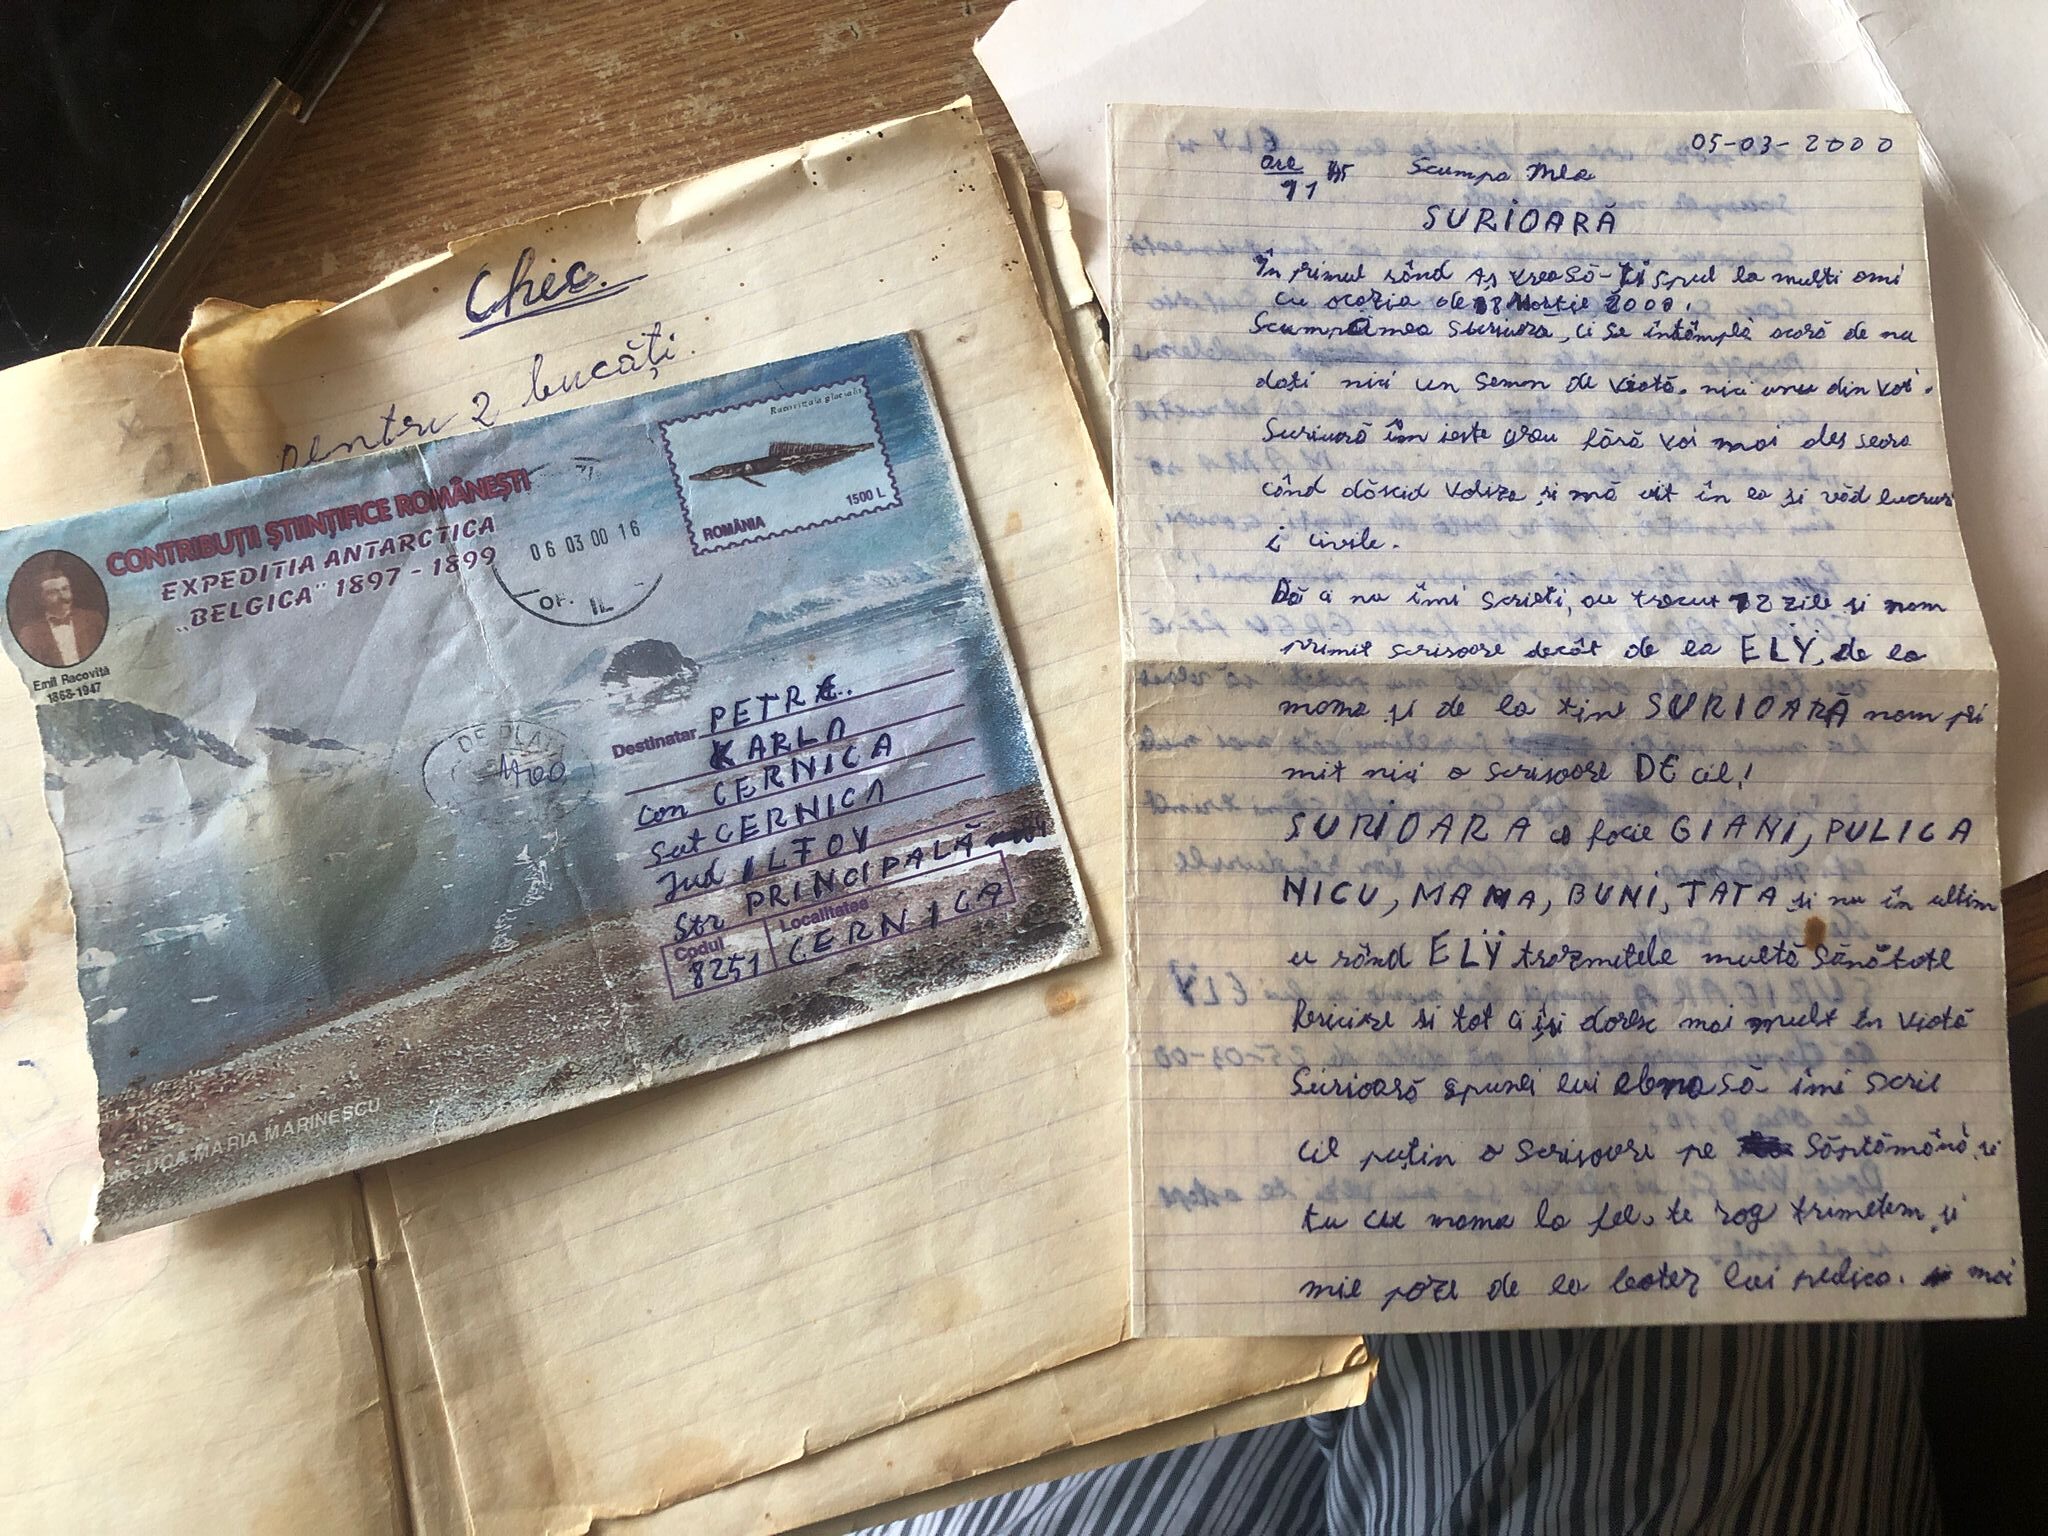 Chec.
pentru 2 bucăți.
CONTRIBUȚII ȘTIINȚIFICE ROMÂNEȘTI
EXPEDITIA ANTARCTICA
„BELGICA" 1897 - 1899
Emil Racoviță
1868-1947
06 03 00 16
OF. IL
Racovitzaia glacialis
1500 L
ROMÂNIA
DE PLATĂ
Destinatar PETRE
KARLA
com CERNICA
Sat CERNICA
Jud ILFOV
Str PRINCIPALĂ
Codul Localitatea
8251 CERNICA
UCA MARIA MARINESCU
05-03-2000
ore 11 Scumpa Mea
SURIOARĂ
În primul rînd Aș vrea Să-ți spul la mulți ani
cu ocazia de 8 Martie 2000.
Scumpa mea Surioara, ci se întâmplă acasă de nu
dați nici un Semn de viată. nici unu din voi.
Surioară îm ieste grau fără voi mai ales seara
când dăscid Valiza și mă uit în ea și văd lucrur
i civile.
Dă ci nu îmi scrieti, au trecut 12 zile și nam
primit scrisoare decât de la ELY, de la
mama și de la tine SURIOARĂ nam pri
mit nici o scrisoare DE cil!
SURIOARA ce facie GIANI, PULICA
NICU, MAMA, BUNI, TATA și nu în ultim
u rând ELY trazmitele multă Sănătate
Fericire si tot ci își doresc mai mult în viată
Surioară spunei lui elena să îmi scrie
cel puțin o scrisoare pe Săptămână, și
tu cu mama la fel. te rog trimetem și
mie poze de la botez lui pedico. mai